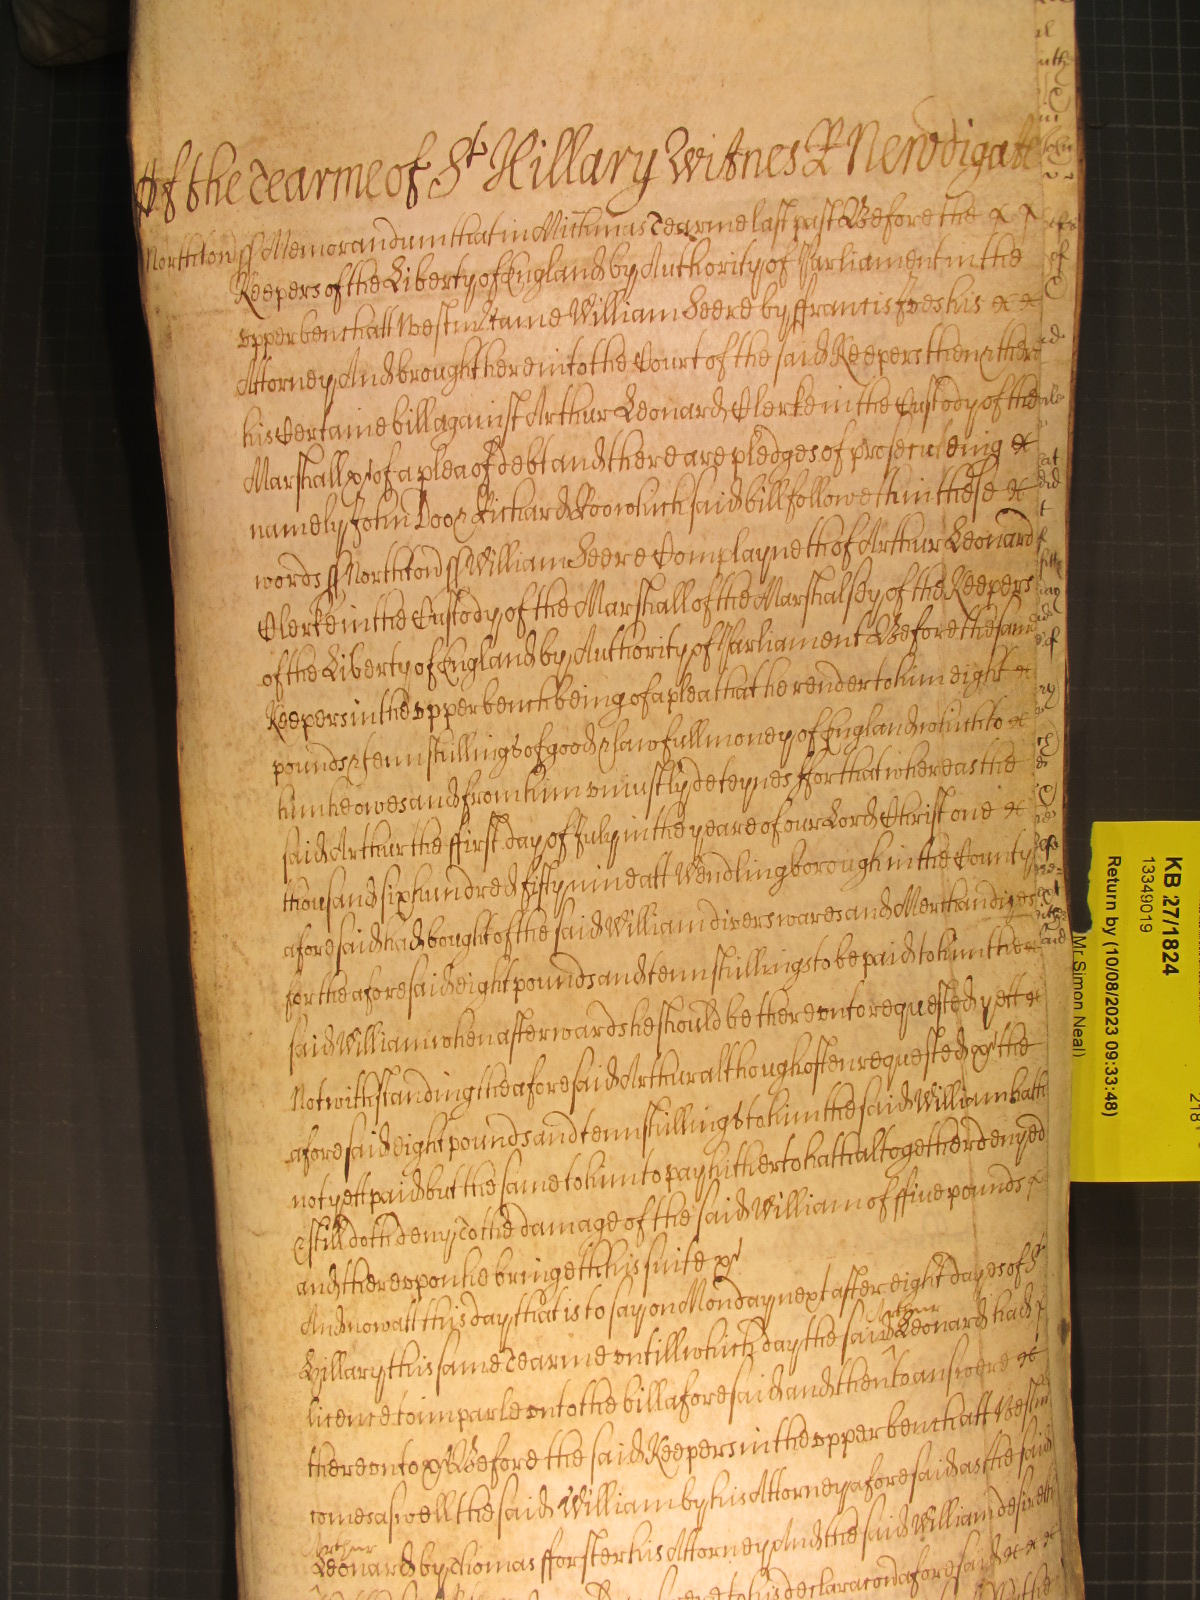 Of the tearme of St Hillary Witnes R Newdigate
Northton ss Memorandum that in Michmas Tearme last past Before the
Keepers of the Liberty of England by Authority of Parliament in the
upper bench att Westmr came William Heere by ffrancis his
Attorney And brought here into the Court of the said Keepers then & there
his Certaine bill against Arthur Leonard Clerke in the Custody of the
Marshall &c of a plea of debt and there are pledges of prosecuteing
namely John Doo & Richard Roo which said bill followeth in these
words ss Northton ss William Heere Complayneth of Arthur Leonard
Clerke in the Custody of the Marshall of the Marshalsey of the Keepers
of the Liberty of England by Authority of Parliament Before the same
Keepers in the upper bench being of a plea that he render to him eight
pounds & tenn shillings of good & lawfull money of England which to
him he owes and from him uniustly deteynes ffor that whereas the
said Arthur the ffirst day of July in the yeare of our Lord Christ one
thousand six hundred fiftynine att Wendlingborough in the County
aforesaid had bought of the said William divers wares and Merchandizes
for the aforesaid eight pounds and tenn shillings to be paid to him the
said William when afterwards he should be thereunto requested yett
Notwithstanding the aforesaid Arthur although often requested &c the
aforesaid eight pounds and tenn shillings to him the said William hath
not yett paid but the same to him to pay hitherto hath altogether denyed
& still doth deny To the damage of the said William of ffive pounds
and thereupon he bringeth his suite &c
And now att this day that is to say on Monday next after eight dayes of St
Hillary this same Tearme untill which day the said Arthur Leonard had
licence to imparle unto the bill aforesaid and then to answere
thereunto &c Before the said Keepers in the upper bench att Westmr
comes aswell the said William by his Attorney aforesaid as the said
Arthur Leonard by Thomas fforster his Attorney And the said William desireth
to his declaracon aforesaid
KB 27/1824
13349019
Return by (10/08/2023 09:33:48)
Mr Simon Neal)